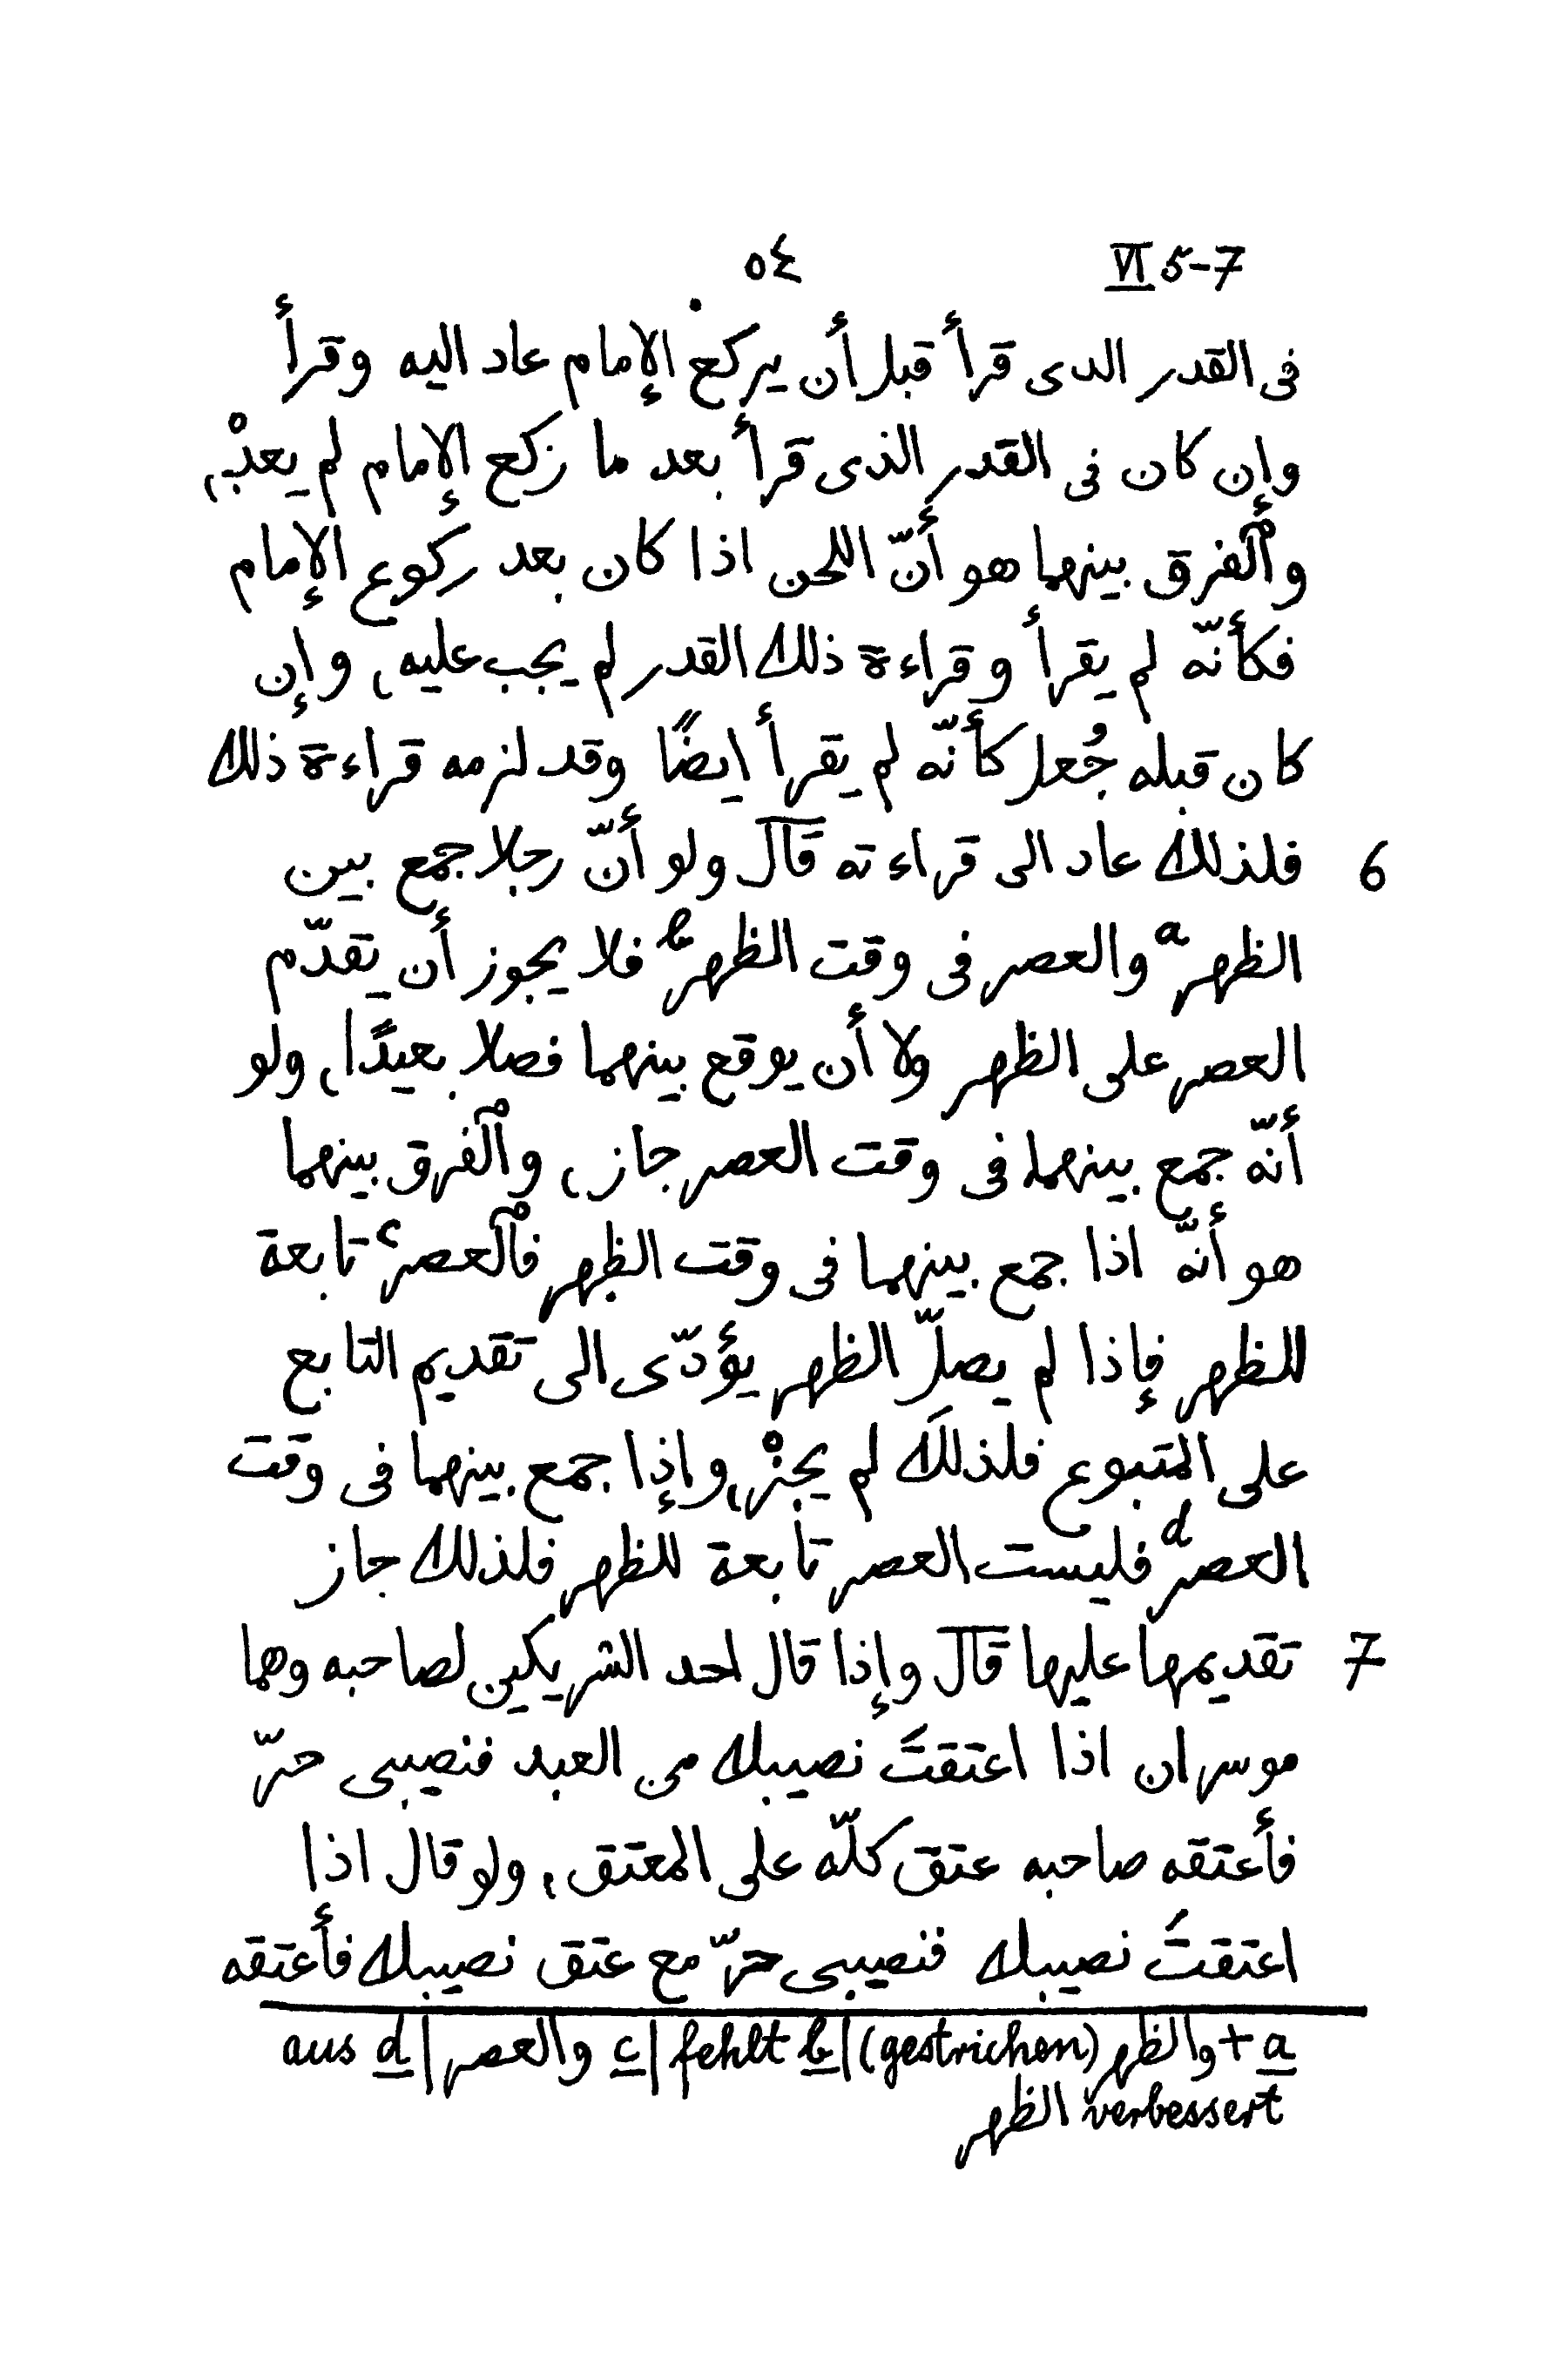 VI 5-7 ٥٤
فى القدر الدى قرأ قبل أن يركع الإمام عاد اليه وقرأ
وإن كان فى القدر الذى قرأ بعد ما ركع الإمام لم يعدْ،
وٱلفرق بينهما هو أنّ اللحن اذا كان بعد ركوع الإمام
فكأنّه لم يقرأ وقراءة ذلك القدر لم يجب عليه، وإن
كان قبله جُعل كأنّه لم يقرأ ايضًا وقد لزمه قراءة ذلك
6 فلذلك عاد الى قراءته قال ولو أنّ رجلا جمع بين
الظهر a والعصر فى وقت الظهر b فلا يجوز أن يقدّم
العصر على الظهر ولا أن يوقع بينهما فصلا بعيدًا، ولو
أنّه جمع بينهما فى وقت العصر جاز، وٱلفرق بينهما
هو أنّه اذا جمع بينهما فى وقت الظهر فٱلعصر c تابعة
للظهر فإذا لم يصلّ الظهر يؤدّى الى تقديم التابع
على المتبوع فلذلك لم يجزْ، وإذا جمع بينهما فى وقت
العصر d فليست العصر تابعة للظهر فلذلك جاز
7 تقديمها عليها قال وإذا قال احد الشريكين لصاحبه وهما
موسران اذا اعتقتَ نصيبك من العبد فنصيبى حرّ
فأعتقه صاحبه عتق كلّه على المعتق، ولو قال اذا
اعتقتَ نصيبك فنصيبى حرّ مع عتق نصيبك فأعتقه
a + والظهر (gestrichen) | b fehlt | c والعصر | d aus
الظهر verbessert